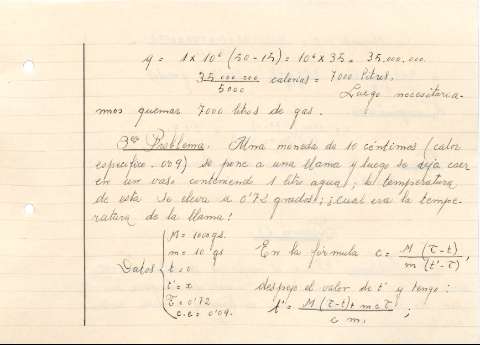 q = 1 x 10⁶ (50-15) = 10⁶ x 35 = 35.000.000.
35.000.000 / 5000 calorias = 7000 litros.
Luego necesitaria-
mos quemar 7000 litros de gas.
3er Problema. Una moneda de 10 céntimos (calor
especifico .009) se pone a una llama y luego se deja caer
en un vaso conteniendo 1 litro agua; la temperatura
de esta se eleva a 0'72 grados; ¿cual era la tempe-
ratura de la llama?
Datos
M = 1000 gs.
m = 10 gs
t = 0
t' = x
T = 0'72
c.e = 0'09.
En la fórmula c = M (T-t) / m (t'-T),
despejo el valor de t' y tengo:
t' = M (T-t) + m c T / c m. ;